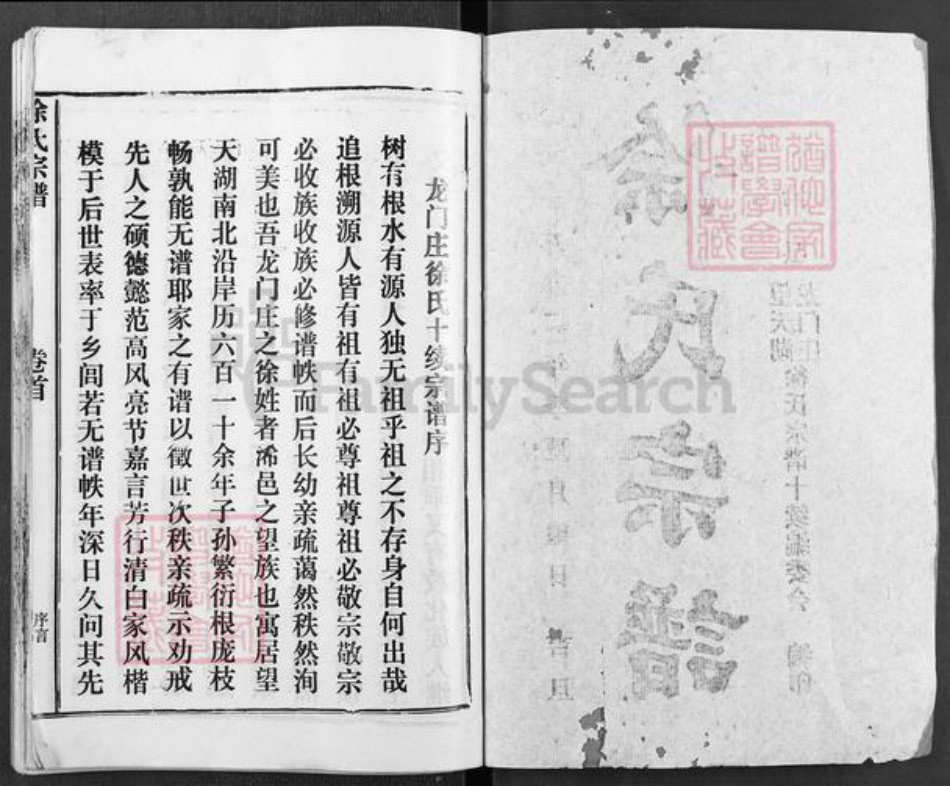 徐氏宗譜
龙门庄徐氏十续宗谱序
树有根水有源人独无祖乎祖之不存身自何出哉
追根溯源人皆有祖有祖必尊祖尊祖必敬宗敬宗
必收族收族必修谱帙而后长幼亲疏蔼然秩然洵
可美也吾龙门庄之徐姓者浠邑之望族也寓居望
天湖南北沿岸历六百一十余年子孙繁衍根庞枝
畅孰能无谱耶家之有谱以徵世次秩亲疏示劝戒
先人之硕德懿范高风亮节嘉言芳行清白家风楷
模于后世表率于乡闾若无谱帙年深日久问其先
徐氏宗谱
卷首
序言
龙门庄
望天湖徐氏宗谱十续编委会 编印
猶他家
譜學會
收藏
FamilySearch